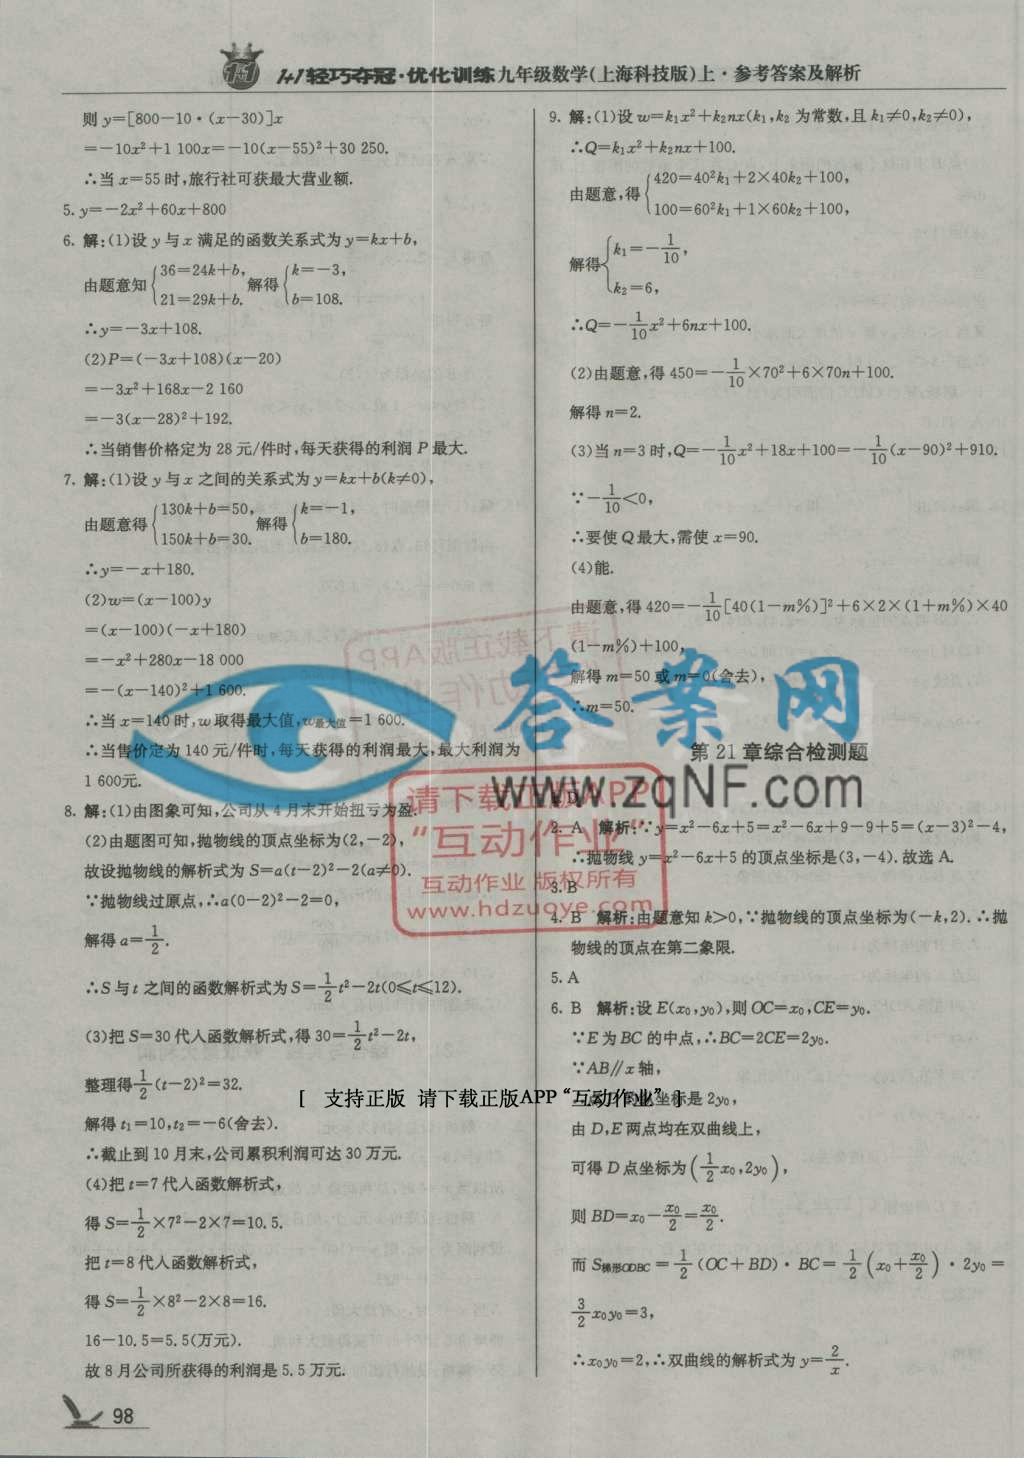 1+1轻巧夺冠·优化训练九年级数学(上海科技版)上·参考答案及解析
则y=[800-10·(x-30)]x
=-10x²+1 100x=-10(x-55)²+30 250.
∴当x=55时,旅行社可获最大营业额.
5. y=-2x²+60x+800
6. 解:(1)设y与x满足的函数关系式为y=kx+b,
由题意知{36=24k+b, 21=29k+b. 解得{k=-3, b=108.
∴y=-3x+108.
(2)P=(-3x+108)(x-20)
=-3x²+168x-2 160
=-3(x-28)²+192.
∴当销售价格定为28元/件时,每天获得的利润P最大.
7. 解:(1)设y与x之间的关系式为y=kx+b(k≠0),
由题意得{130k+b=50, 150k+b=30. 解得{k=-1, b=180.
∴y=-x+180.
(2)w=(x-100)y
=(x-100)(-x+180)
=-x²+280x-18 000
=-(x-140)²+1 600.
∴当x=140时,w取得最大值,w最大值=1 600.
∴当售价定为140元/件时,每天获得的利润最大,最大利润为
1 600元.
8. 解:(1)由图象可知,公司从4月末开始扭亏为盈.
(2)由题图可知,抛物线的顶点坐标为(2,-2),
故设抛物线的解析式为S=a(t-2)²-2(a≠0).
∵抛物线过原点,∴a(0-2)²-2=0,
解得a=1/2.
∴S与t之间的函数解析式为S=1/2t²-2t(0≤t≤12).
(3)把S=30代入函数解析式,得30=1/2t²-2t,
整理得1/2(t-2)²=32.
解得t₁=10,t₂=-6(舍去).
∴截止到10月末,公司累积利润可达30万元.
(4)把t=7代入函数解析式,
得S=1/2×7²-2×7=10.5.
把t=8代入函数解析式,
得S=1/2×8²-2×8=16.
16-10.5=5.5(万元).
故8月公司所获得的利润是5.5万元.
9. 解:(1)设w=k₁x²+k₂nx(k₁,k₂为常数,且k₁≠0,k₂≠0),
∴Q=k₁x²+k₂nx+100.
由题意,得{420=40²k₁+2×40k₂+100, 100=60²k₁+1×60k₂+100,
解得{k₁=-1/10, k₂=6,
∴Q=-1/10x²+6nx+100.
(2)由题意,得450=-1/10×70²+6×70n+100.
解得n=2.
(3)当n=3时,Q=-1/10x²+18x+100=-1/10(x-90)²+910.
∵-1/10<0,
∴要使Q最大,需使x=90.
(4)能.
由题意,得420=-1/10[40(1-m%)]²+6×2×(1+m%)×40
(1-m%)+100,
解得m=50或m=0(舍去),
∴m=50.
第21章综合检测题
D
2. A 解析:∵y=x²-6x+5=x²-6x+9-9+5=(x-3)²-4,
∴抛物线y=x²-6x+5的顶点坐标是(3,-4).故选A.
3. B
4. B 解析:由题意知k>0,∵抛物线的顶点坐标为(-k,2).∴抛
物线的顶点在第二象限.
5. A
6. B 解析:设E(x₀,y₀),则OC=x₀,CE=y₀.
∵E为BC的中点,∴BC=2CE=2y₀.
∵AB∥x轴,
坐标是2y₀,
由D,E两点均在双曲线上,
可得D点坐标为(1/2x₀,2y₀),
则BD=x₀-x₀/2=x₀/2.
而S梯形ODBC=1/2(OC+BD)·BC=1/2(x₀+x₀/2)·2y₀=
3/2x₀y₀=3,
∴x₀y₀=2,∴双曲线的解析式为y=2/x.
98
答案网
www.zqNF.com
请下载正版APP
“互动作业”
互动作业 版权所有
www.hdzuoye.com
[ 支持正版 请下载正版APP“互动作业” ]